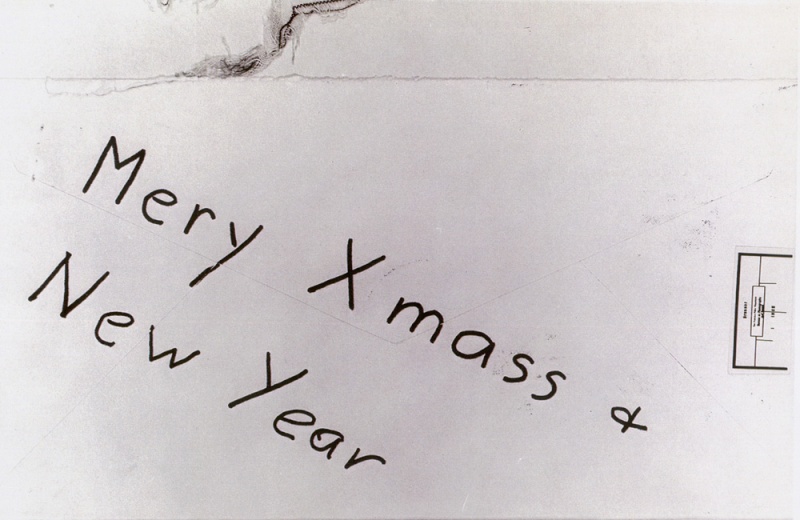 Mery Xmass &
New Year